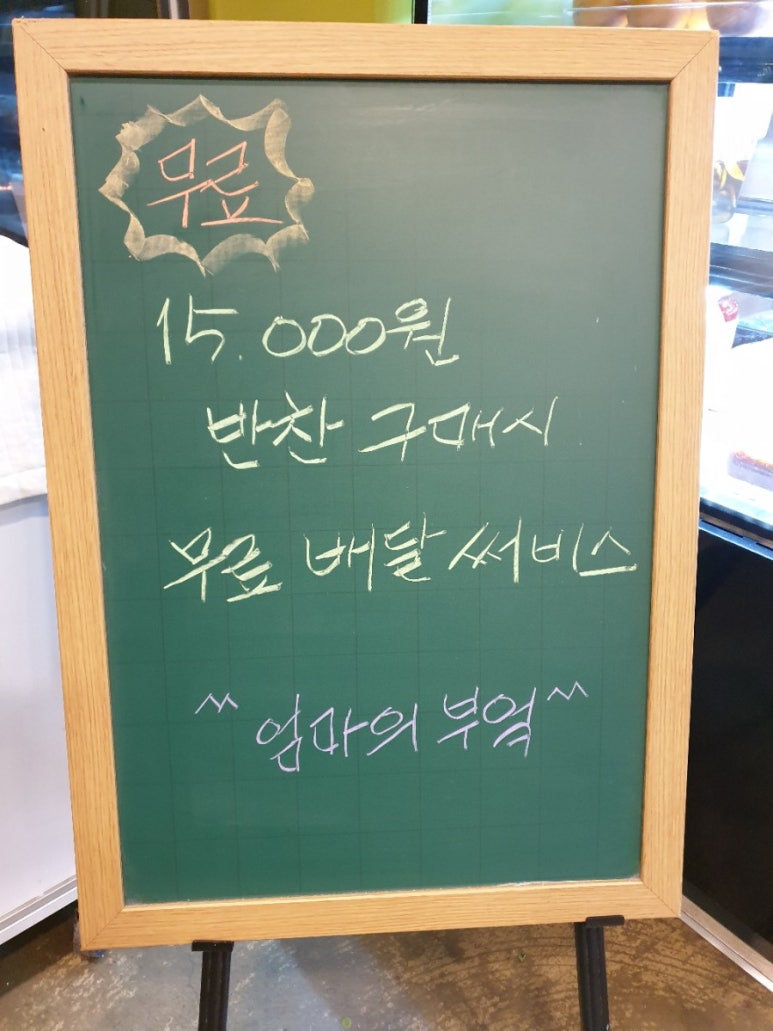 무료
15.000원
반찬 구매시
무료 배달 써비스
^^ 엄마의 부엌 ^^